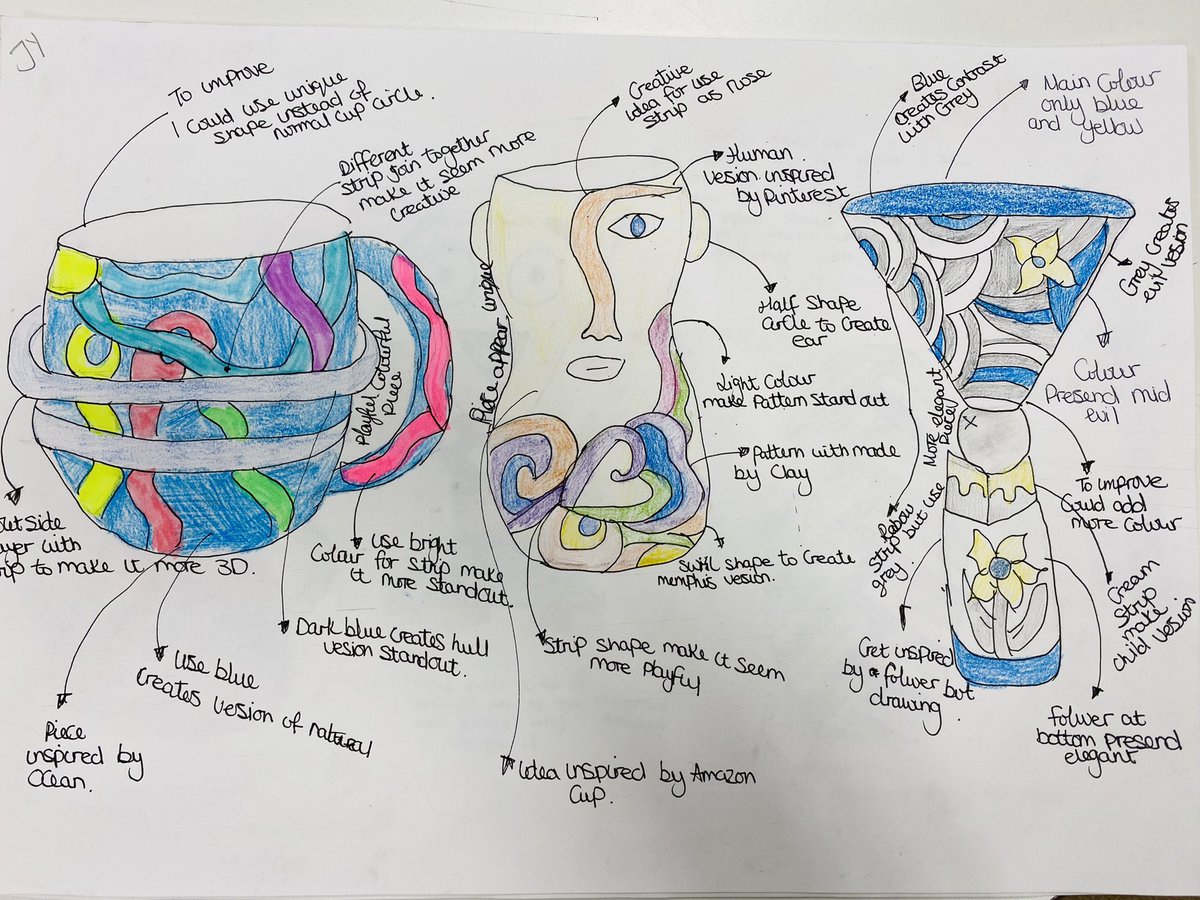 JY
To improve
I could use unique
shape instead of
normal cup circle.
Different
strip join together
make it seem more
creative
Playful Colourful
Piece
outside
layer with
strip to make it more 3D.
Use bright
Colour for strip make
it more standout.
Dark blue creates hull
vesion standout.
Use blue
creates version of natural
Piece
inspired by
Ocean.
Creative
idea for use
strip as nose
Human
vesion inspired
by Pinterest
Half Shape
circle to create
ear
Light Colour
make Pattern Stand out
Pattern with made
by Clay
shape to Create
memphis vesion.
Strip shape make it seem
more Playful
Idea inspired by Amazon
Cup.
Piece appear unique
Blue
creates contrast
with Grey
Main Colour
only blue
and yellow
Grey Creates
evil vesion
Colour
Presend mid
evil
To improve
Could add
more Colour
More elegant
Piece
strip but use
grey.
Cream
Strip
make
child vesion
Get inspired
by folwer but
drawing.
Folwer at
bottom presend
elegant